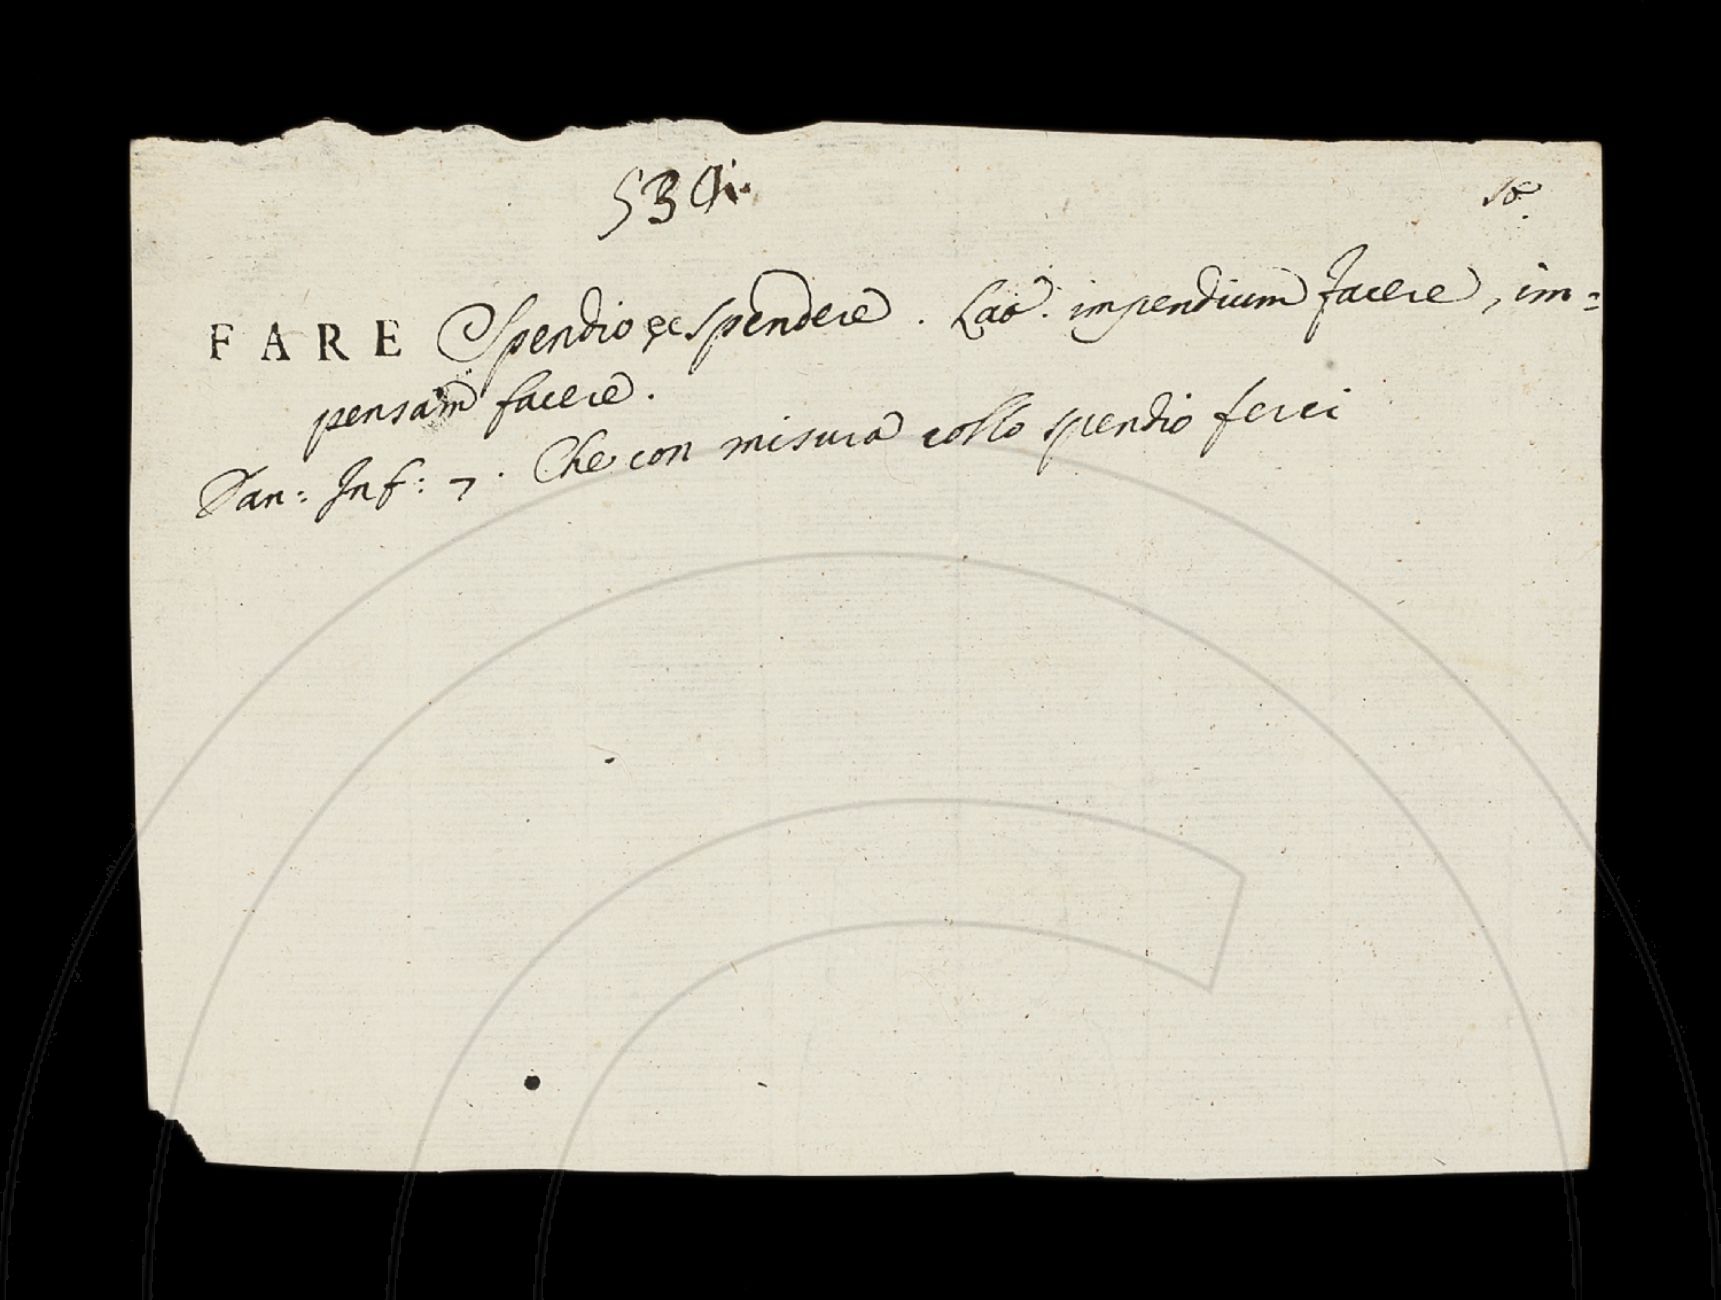 53
FARE Spendio ꝑ spendere. Lat. impendium facere, im=
pensam facere.
Dan: Inf: 7. Che con misura collo spendio ferci